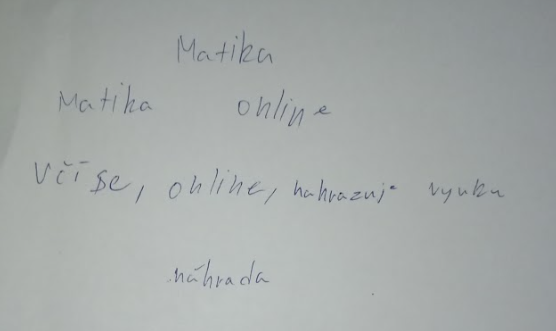 Matika
Matika online
Včí se, online, nahrazuje vyuku
náhrada